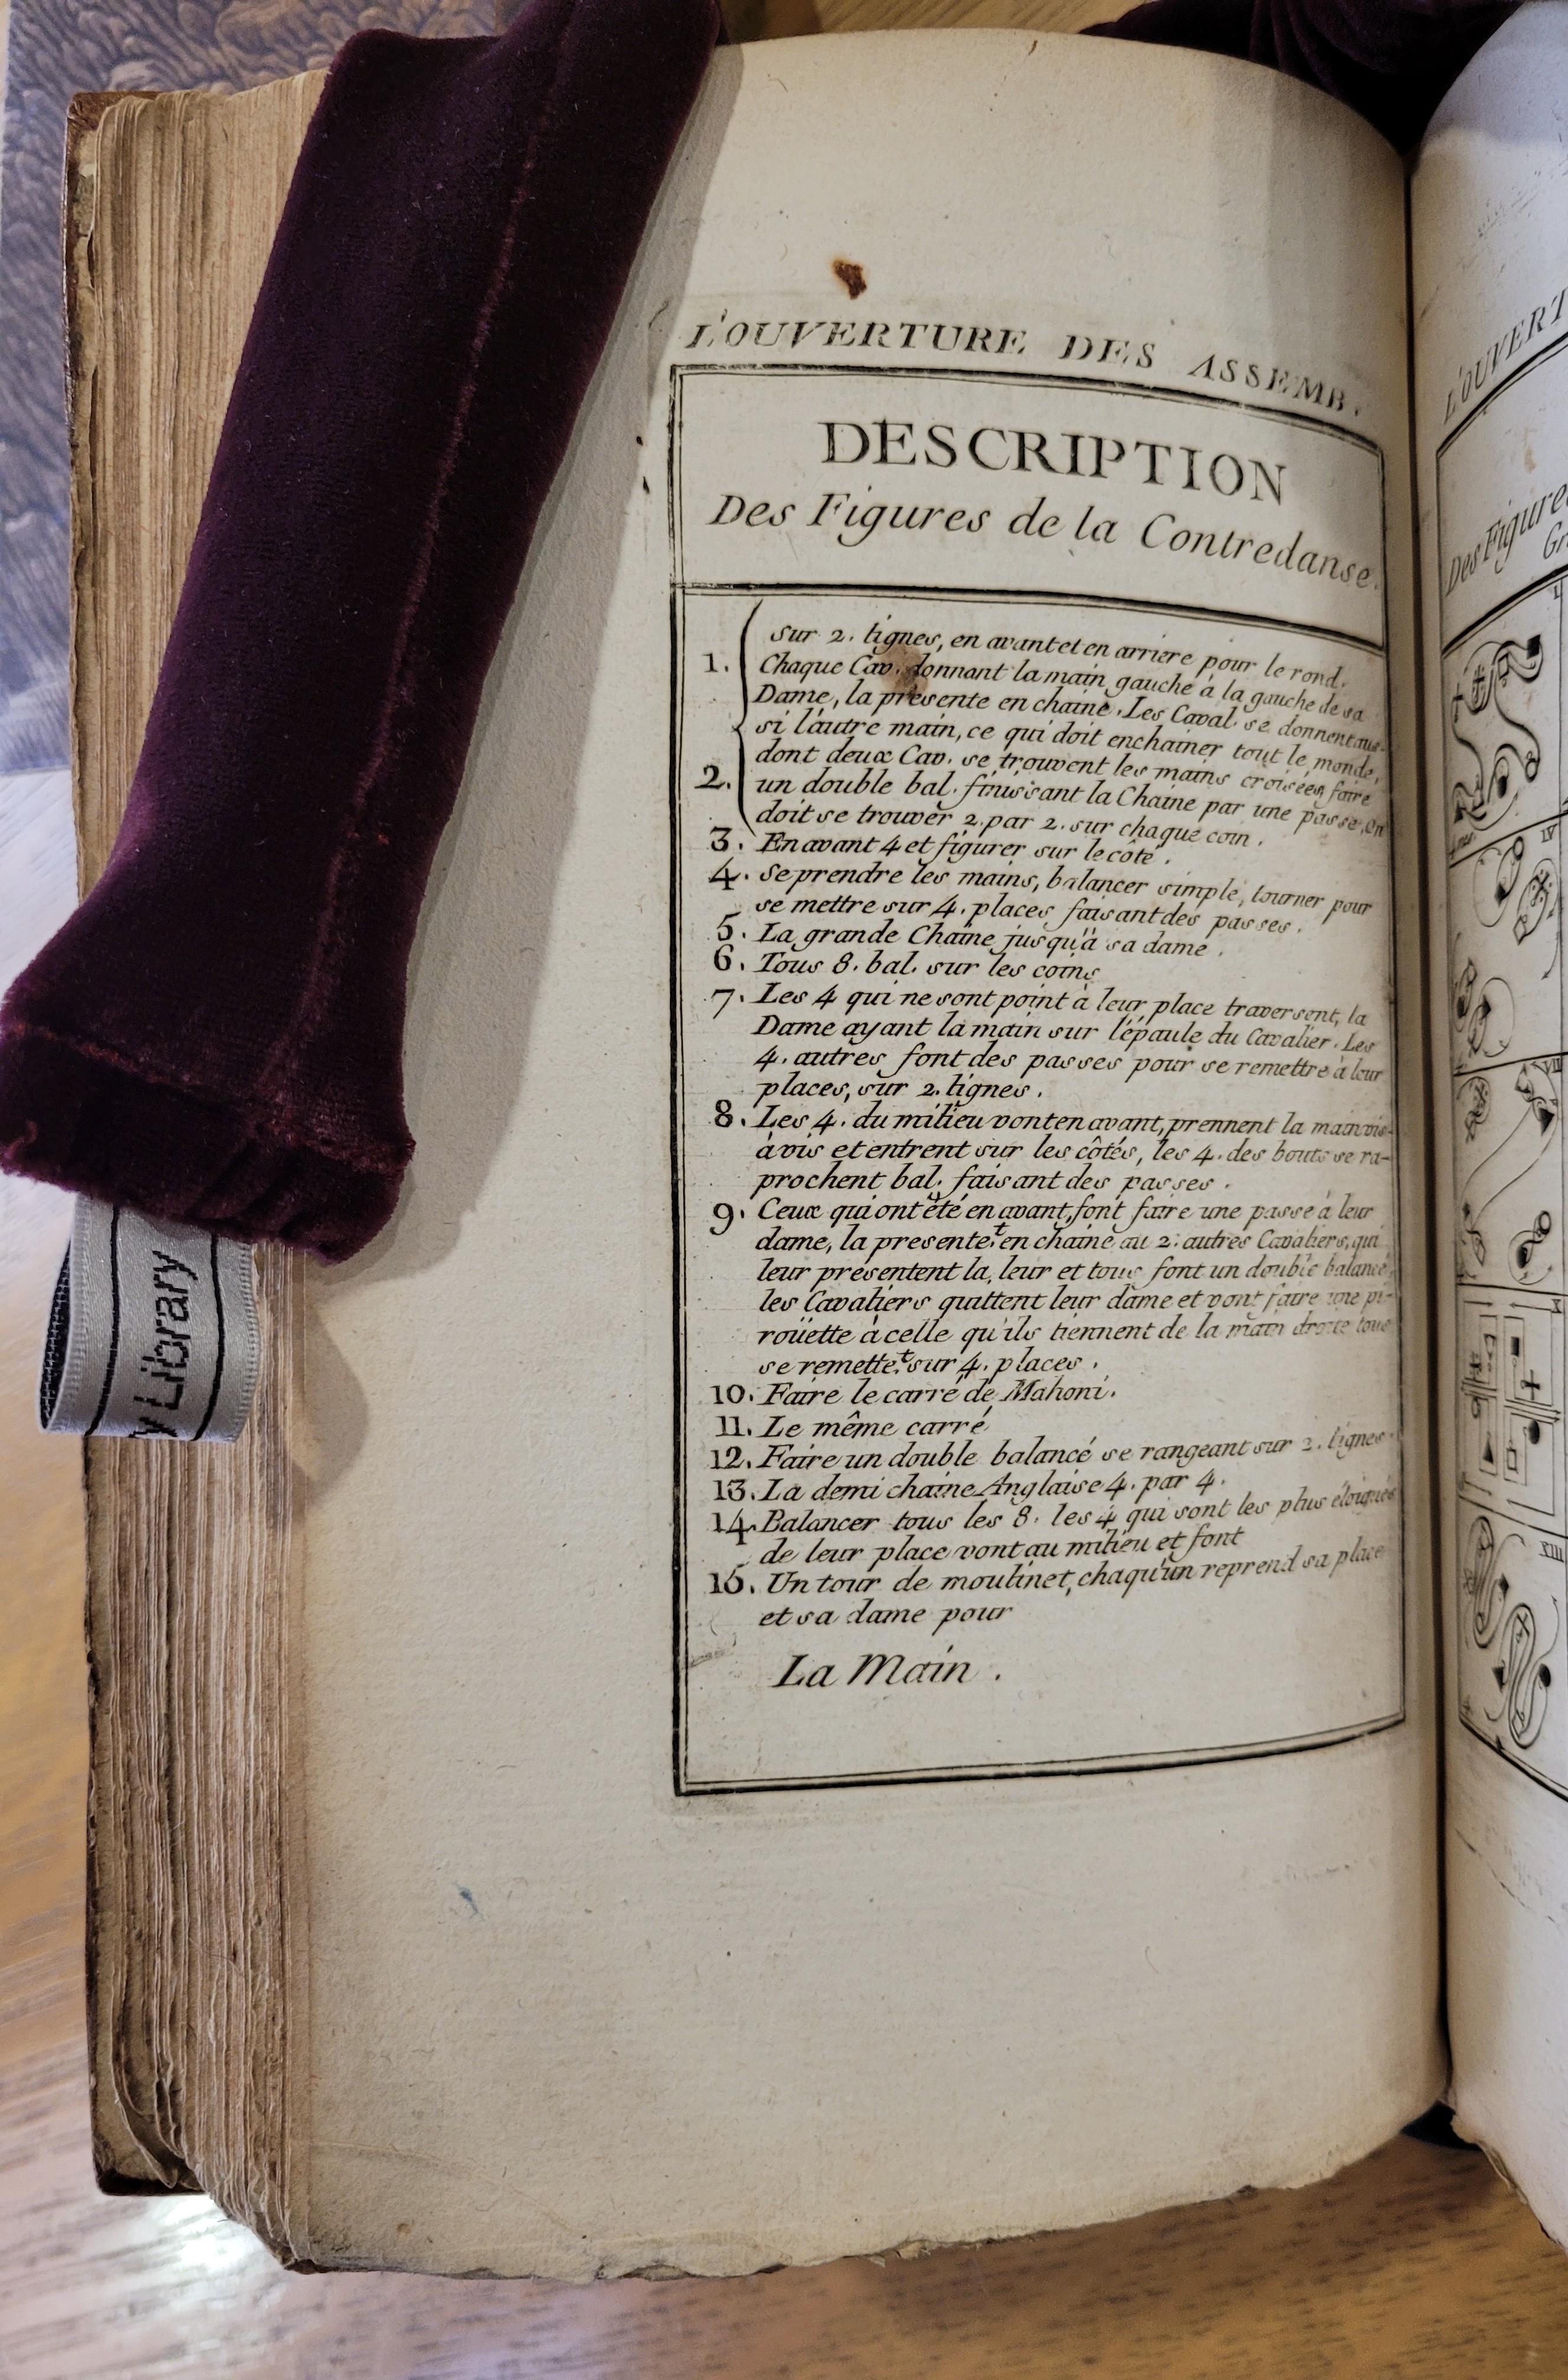 L'OUVERTURE DES ASSEMB.
DESCRIPTION
Des Figures de la Contredanse.
sur 2. lignes, en avant et en arriere pour le rond.
1. Chaque Cav. donnant la main gauche à la gauche de sa
Dame, la présente en chaine. Les Caval. se donnent aus-
si l'autre main, ce qui doit enchainer tout le monde,
dont deux Cav. se trouvent les mains croisées, faire
2. un double bal. finissant la Chaine par une passe, on
doit se trouver 2. par 2. sur chaque coin.
3. En avant 4 et figurer sur le côté.
4. Se prendre les mains, balancer simple, tourner pour
se mettre sur 4. places faisant des passes.
5. La grande Chaîne jusqu'à sa dame.
6. Tous 8. bal. sur les coins
7. Les 4 qui ne sont point à leur place traversent, la
Dame ayant la main sur l'épaule du Cavalier. Les
4. autres font des passes pour se remettre à leur
places, sur 2. lignes.
8. Les 4. du milieu vont en avant, prennent la main vis-
à vis et entrent sur les côtés, les 4. des bouts se ra-
prochent bal. faisant des passes.
9. Ceux qui ont été en avant, font faire une passe à leur
dame, la presente.t en chaine au 2. autres Cavaliers, qui
leur présentent la leur et tous font un double balancé,
les Cavaliers quittent leur dame et vont faire une pi-
roüette à celle qu'ils tiennent de la main droite tous
se remette.t sur 4. places.
10. Faire le carré de Mahoni.
11. Le même carré
12. Faire un double balancé se rangeant sur 2. lignes.
13. La demi chaine Anglaise 4. par 4.
14. Balancer tous les 8. les 4 qui sont les plus éloignés
de leur place vont au milieu et font
15. Un tour de moulinet, chaqu'un reprend sa place
et sa dame pour
La Main.
y Library
L'OUVERT
Des Figures
Gr
I
IV
VII
X
XIII